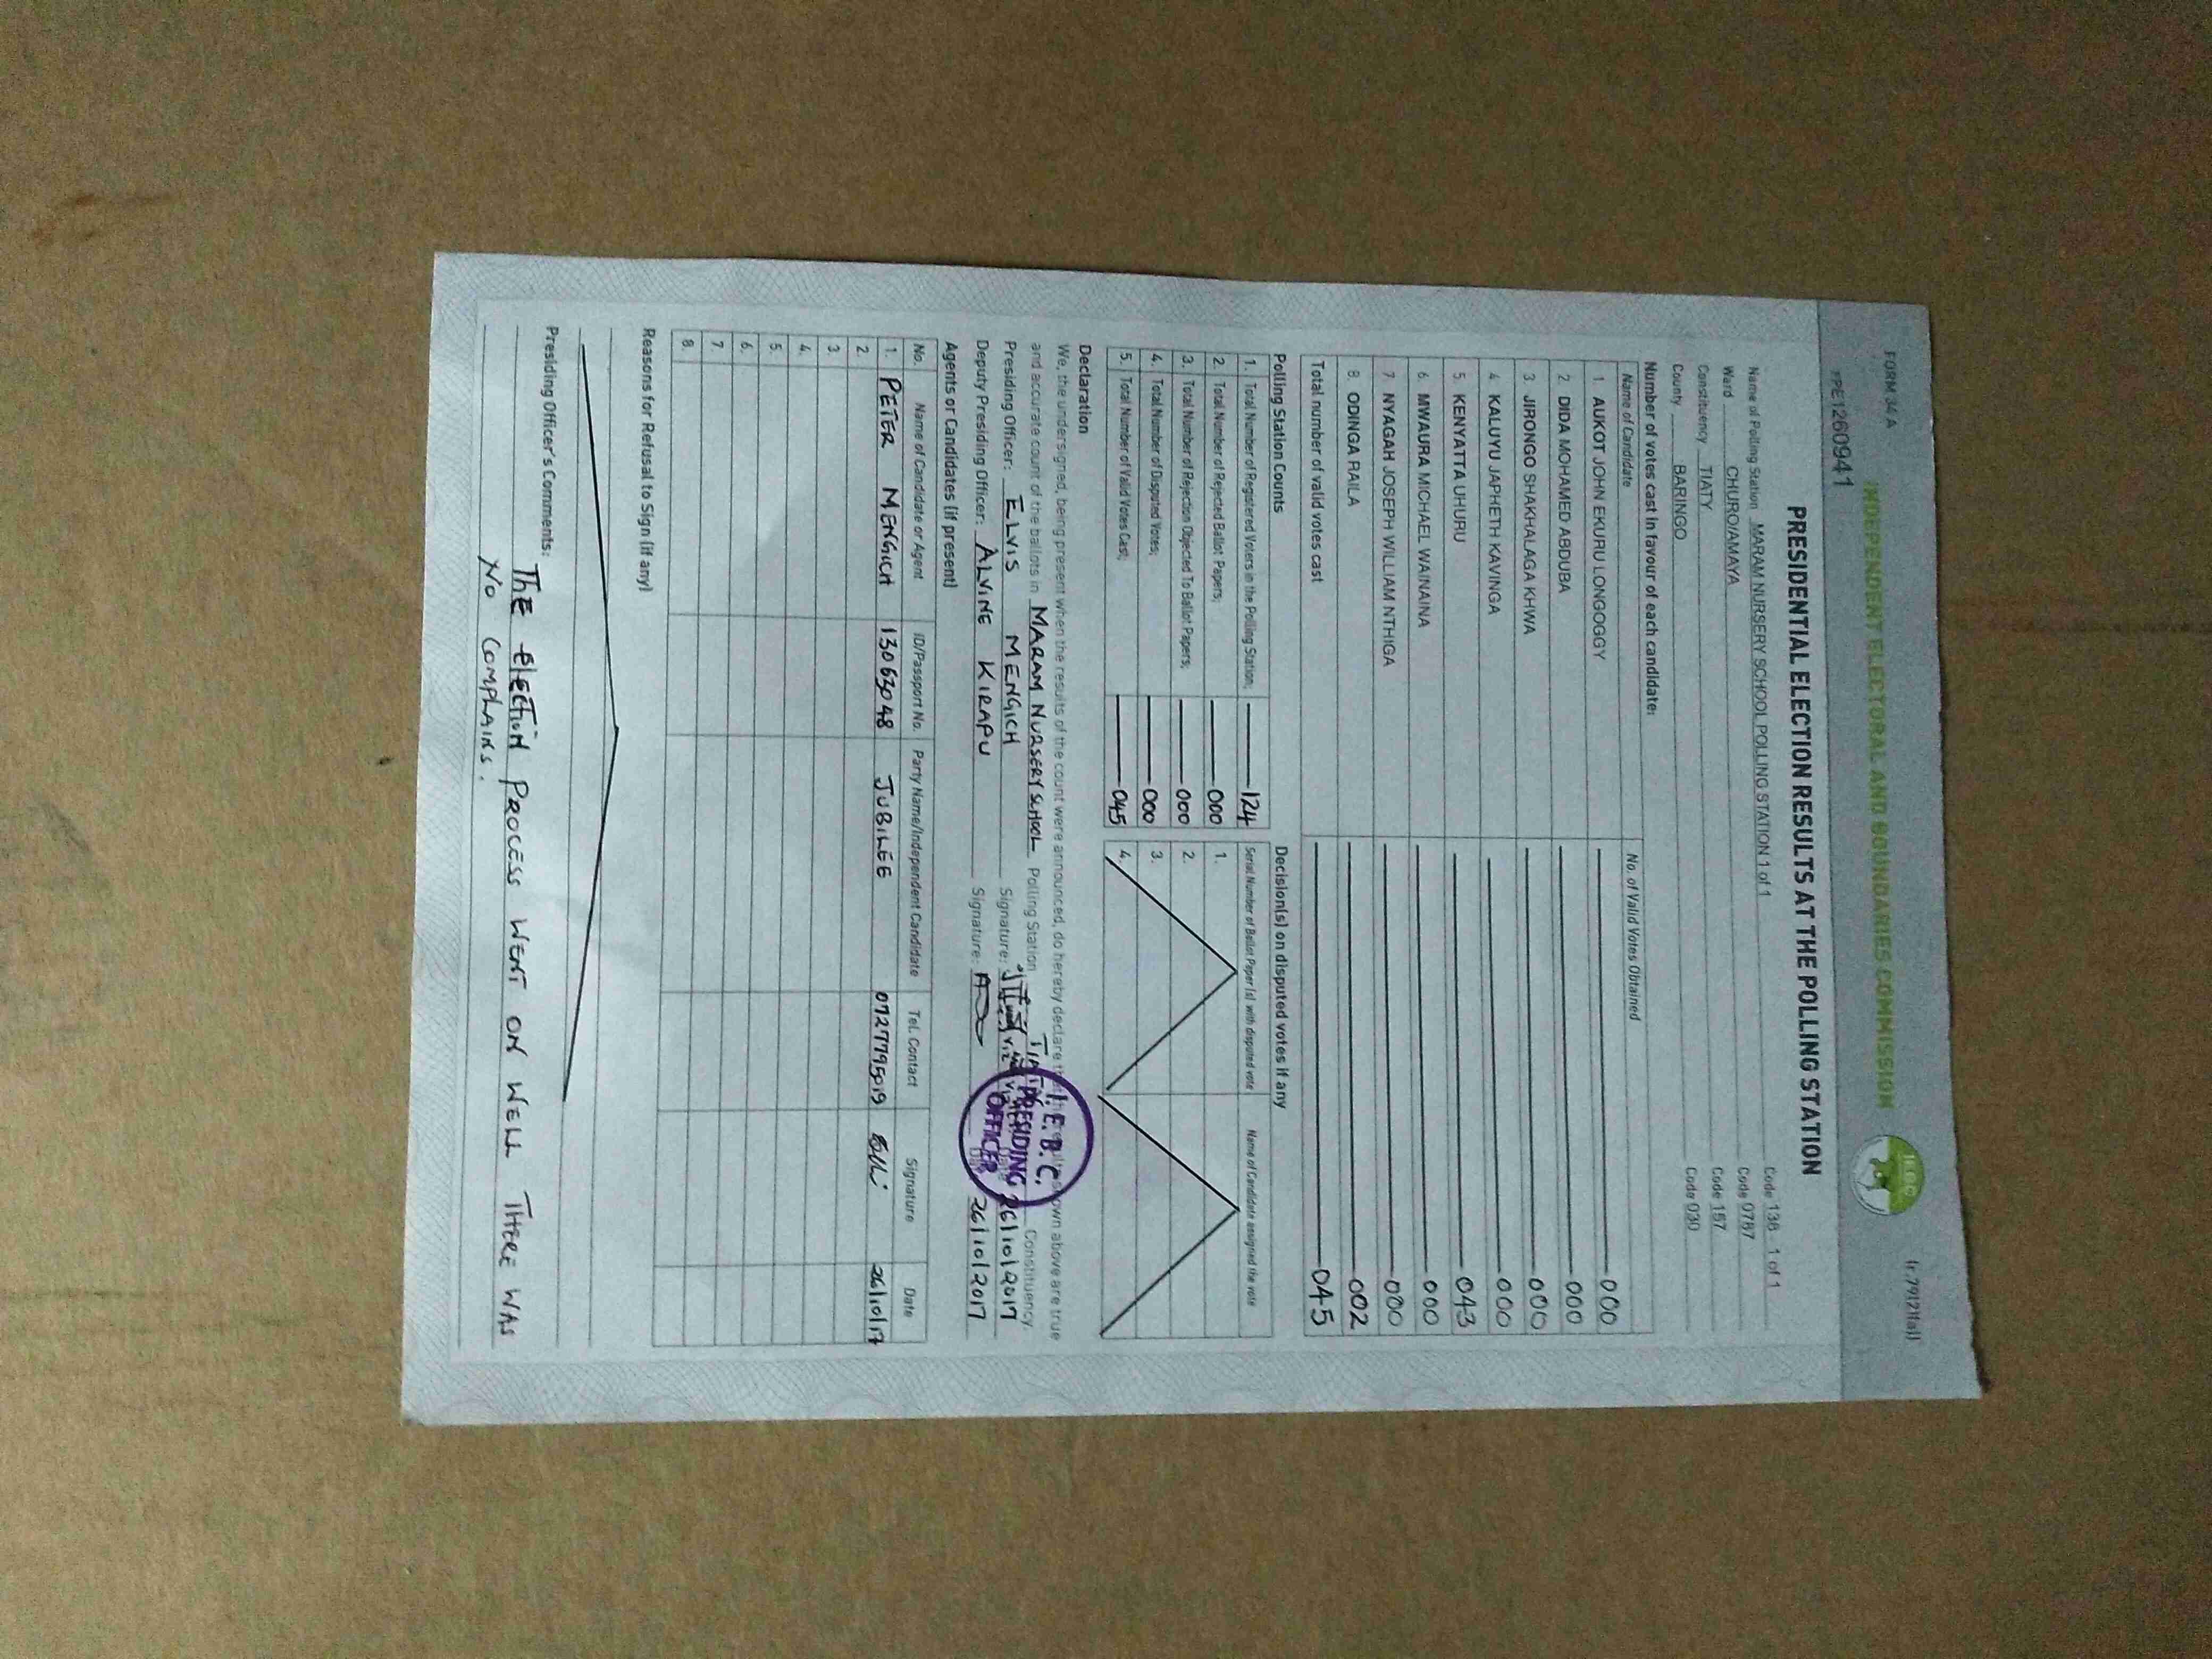 FORM 34 A
(r.79(2)(a))
INDEPENDENT ELECTORAL AND BOUNDARIES COMMISSION
IEBC
PPE1260941
PRESIDENTIAL ELECTION RESULTS AT THE POLLING STATION
Name of Polling Station MARAM NURSERY SCHOOL POLLING STATION 1 of 1 Code 138 1 of 1
Ward CHURO/AMAYA Code 0787
Constituency TIATY Code 157
County BARINGO Code 030
Number of votes cast in favour of each candidate:
Name of Candidate No. of Valid Votes Obtained
1 AUKOT JOHN EKURU LONGOGGY 000
2 DIDA MOHAMED ABDUBA 000
3 JIRONGO SHAKHALAGA KHWA 000
4 KALUYU JAPHETH KAVINGA 000
5 KENYATTA UHURU 043
6 MWAURA MICHAEL WAINAINA 000
7 NYAGAH JOSEPH WILLIAM NTHIGA 000
8 ODINGA RAILA 002
Total number of valid votes cast 045
Polling Station Counts Decision(s) on disputed votes if any
1. Total Number of Registered Voters in the Polling Station; 124 Serial Number of Ballot Paper(s) with disputed vote Name of Candidate assigned the vote
2. Total Number of Rejected Ballot Papers; 000 1.
3. Total Number of Rejection Objected To Ballot Papers; 000 2.
4. Total Number of Disputed Votes; 000 3.
5. Total Number of Valid Votes Cast; 045 4.
Declaration
We, the undersigned, being present when the results of the count were announced, do hereby declare that the results shown above are true
and accurate count of the ballots in MARAM NURSERY SCHOOL Polling Station Constituency.
Presiding Officer: ELVIS MENGICH Signature: Date 26/10/2017
Deputy Presiding Officer: ALVINE KIRAPU Signature: 26/10/2017
I.E.B.C.
PRESIDING
OFFICER
Agents or Candidates (if present)
No. Name of Candidate or Agent ID/Passport No. Party Name/Independent Candidate Tel. Contact Signature Date
1. PETER MENGICH 13063048 JUBILEE 0727795019 26/10/17
2.
3.
4.
5.
6.
7
8.
Reasons for Refusal to Sign (if any)
Presiding Officer's Comments: The election PROCESS WENT ON WELL THERE WAS
NO COMPLAINS.